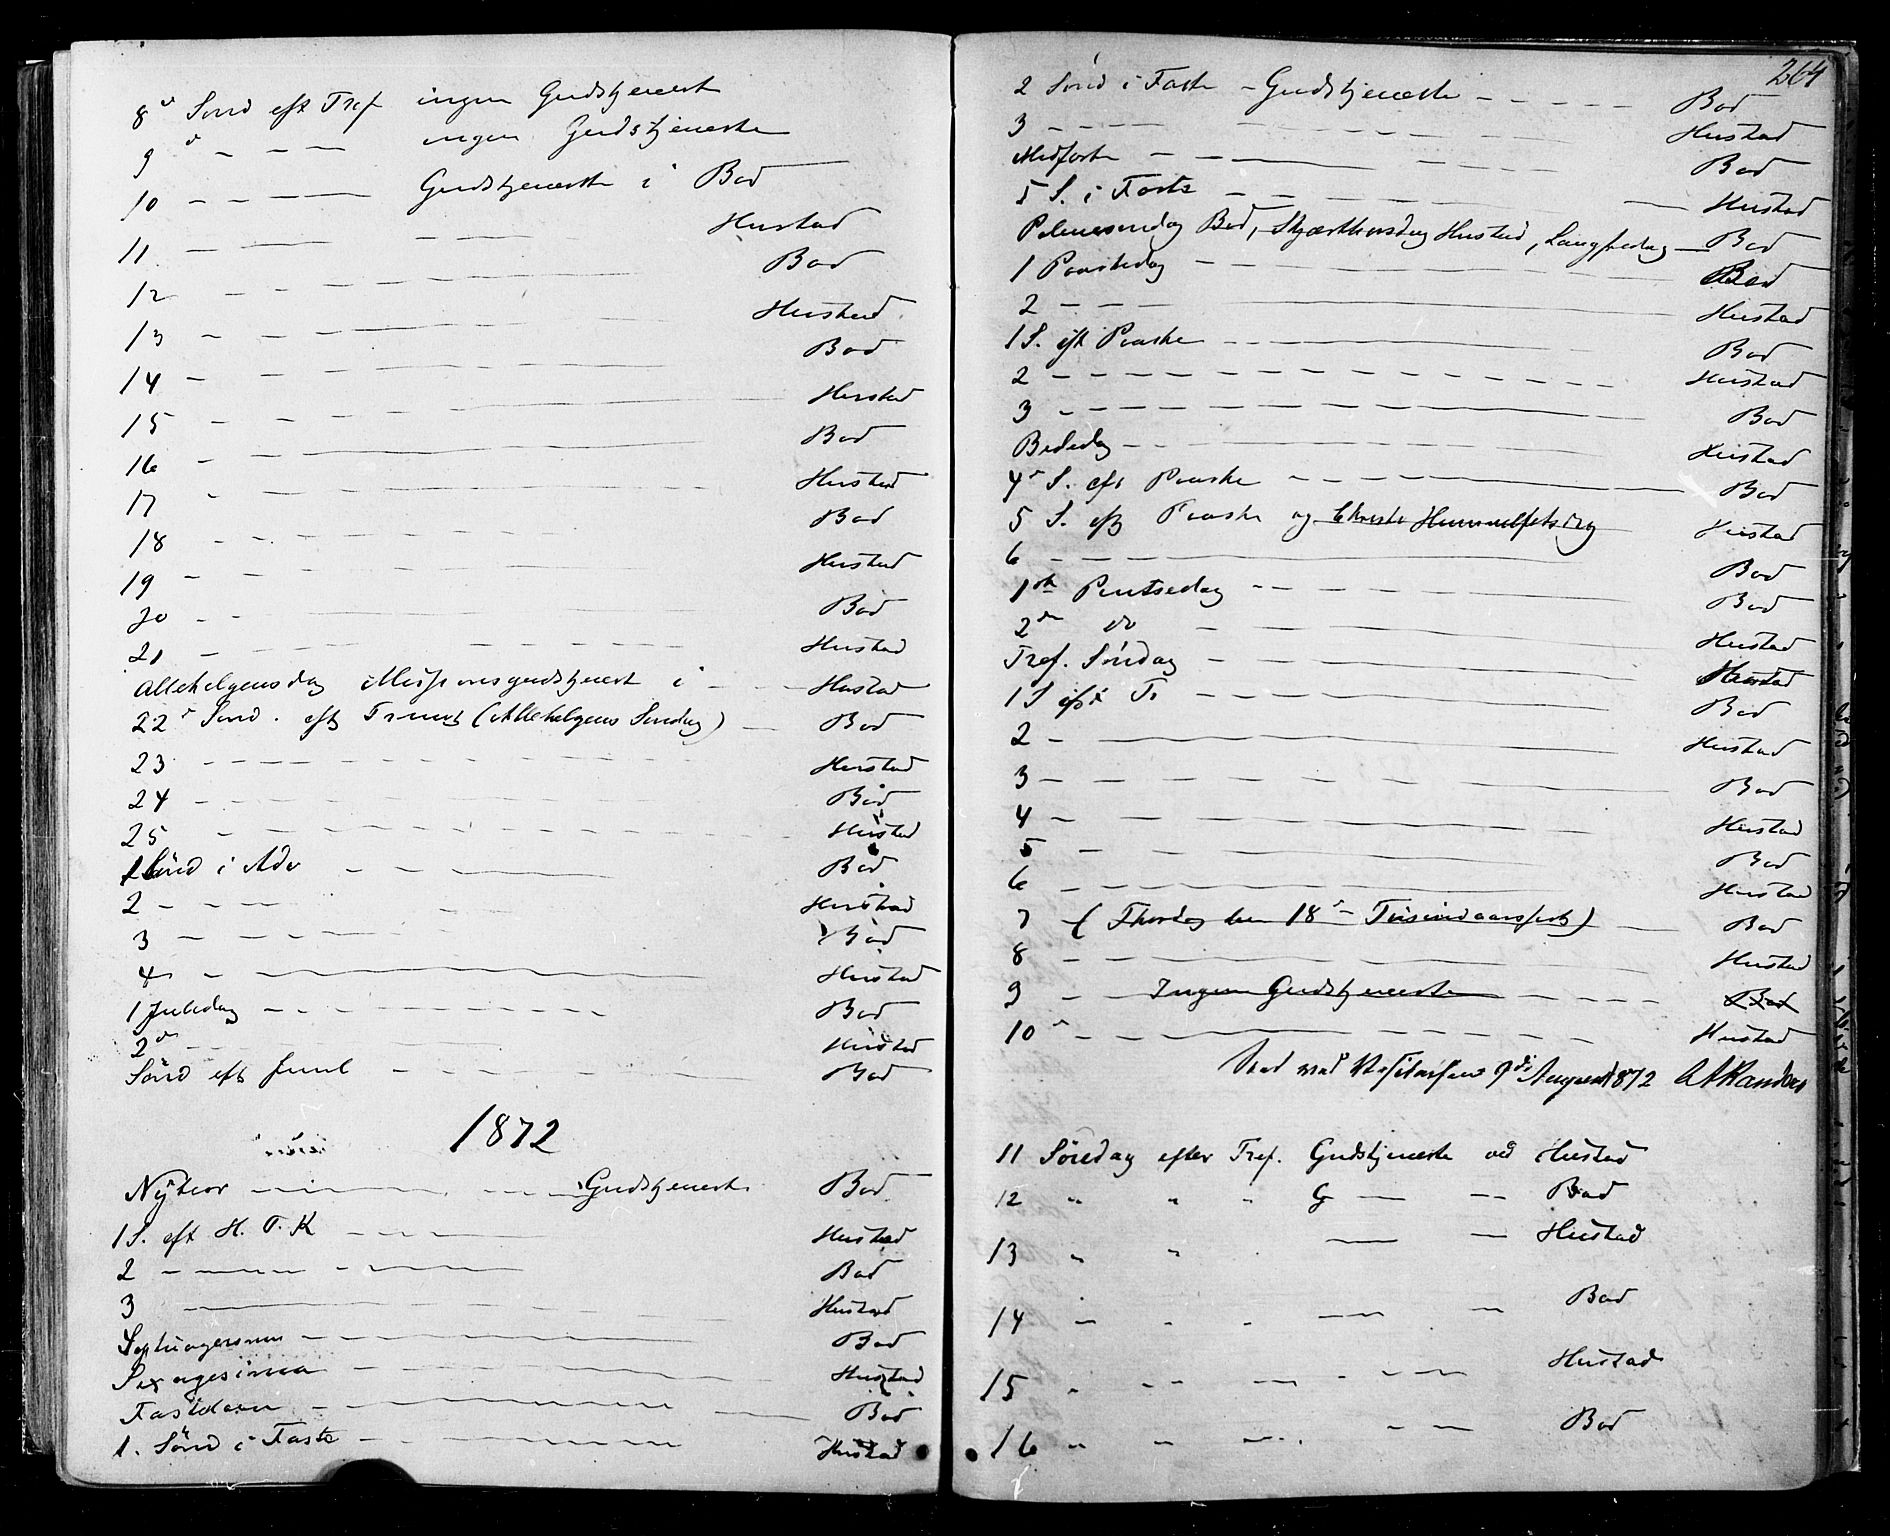 8de Sønd eft Tref ingen Gudstjenest
9 d - - - ingen Gudstjeneste
10 - - - Gudstjeneste i Bod
11 - - - Hustad
12 - - - Bod
13 - - - Hustad
14 - - - Bod
15 - - - Hustad
16 - - - Bod
17 - Hustad
18 - - - Bod
19 - - - Hustad
20 - - Bod
21 - - - Hustad
Allehelgensdag Missionsgudstjenest i - - Hustad
22de Sønd. eft Trinit (Allehelgens Søndag) - Bod
23 - - - Hustad
24 - - - Bod
25 - - - Hustad
1 Sønd i Adv - - - Bod
2 - - - Hustad
3 - - - Bod
4 - - - Hustad
1 Juledag - - - Bod
2de - - - Hustad
Sønd eft Juul - - - Bod
1872
Nytaar - - - Gudstjeneste Bod
1 S. eft H. T. K - - - Hustad
2 - - - Bod
3 - - - Hustad
Septuagesima - - - Bod
Sexagesima - - - Hustad
Fastelavn - - - Bod
1. Sønd i Faste - - - Hustad
264
2 Sønd i Faste - Gudstjeneste - - - Bod
3 - - - Hustad
Midfaste - - - Bod
5 S. i Faste - - - Hustad
Palmesøndag Bod, Skjærthorsdag Hustad, Langfredag - Bod
1 Paaskedag - - - Bod
2 - - - Hustad
1 S. eft Paaske - - - Bod
2 - - - Hustad
3 - - - Bod
Bededag - - - Hustad
4de S. eft Paaske - - - Bod
5 S. eft Paaske og Christi Himmelfartsdag Hustad
6 - - - Bod
1ste Pintsedag - - - Bod
2den do - - - Hustad
Tref. Søndag - - - Hustad
1 S eft Tr - - - Bod
2 - - - Hustad
3 - - - Bod
4 - - - Hustad
5 - - - Bod
6 - - - Hustad
7 - (Thorsdag den 18de - Tusindaarsfest) - Bod
8 - - - Hustad
9 - - Ingen Gudstjeneste - - - Bod
10de - - - Hustad
Seet ved Visitatsen 9de August 1872
11 Søndag efter Tref. Gudstjeneste ved Hustad
12 " " " G - - Bod
13 " " - - Hustad
14 - - - - - Bod
15 " - - - - - Hustad
16 " - - - - Bod